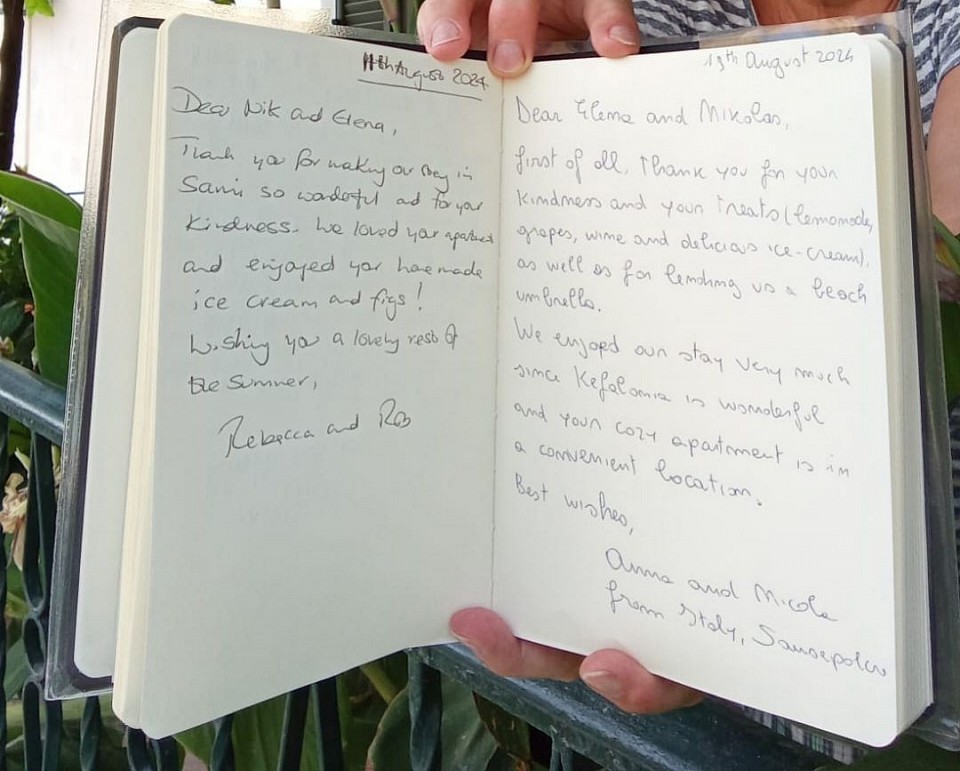 11th August 2024
Dear Nik and Elena,
Thank you for making our stay in
Sami so wonderful and for your
kindness. We loved your apartment
and enjoyed your homemade
ice cream and figs!
Wishing you a lovely rest of
the summer,
Rebecca and Rob
19th August 2024
Dear Elena and Nikolas,
first of all, thank you for your
kindness and your treats (lemonade,
grapes, wine and delicious ice-cream),
as well as for lending us a beach
umbrella.
We enjoyed our stay very much
since Kefalonia is wonderful
and your cozy apartment is in
a convenient location.
Best wishes,
Anna and Nicola
from Italy, Sansepolcro